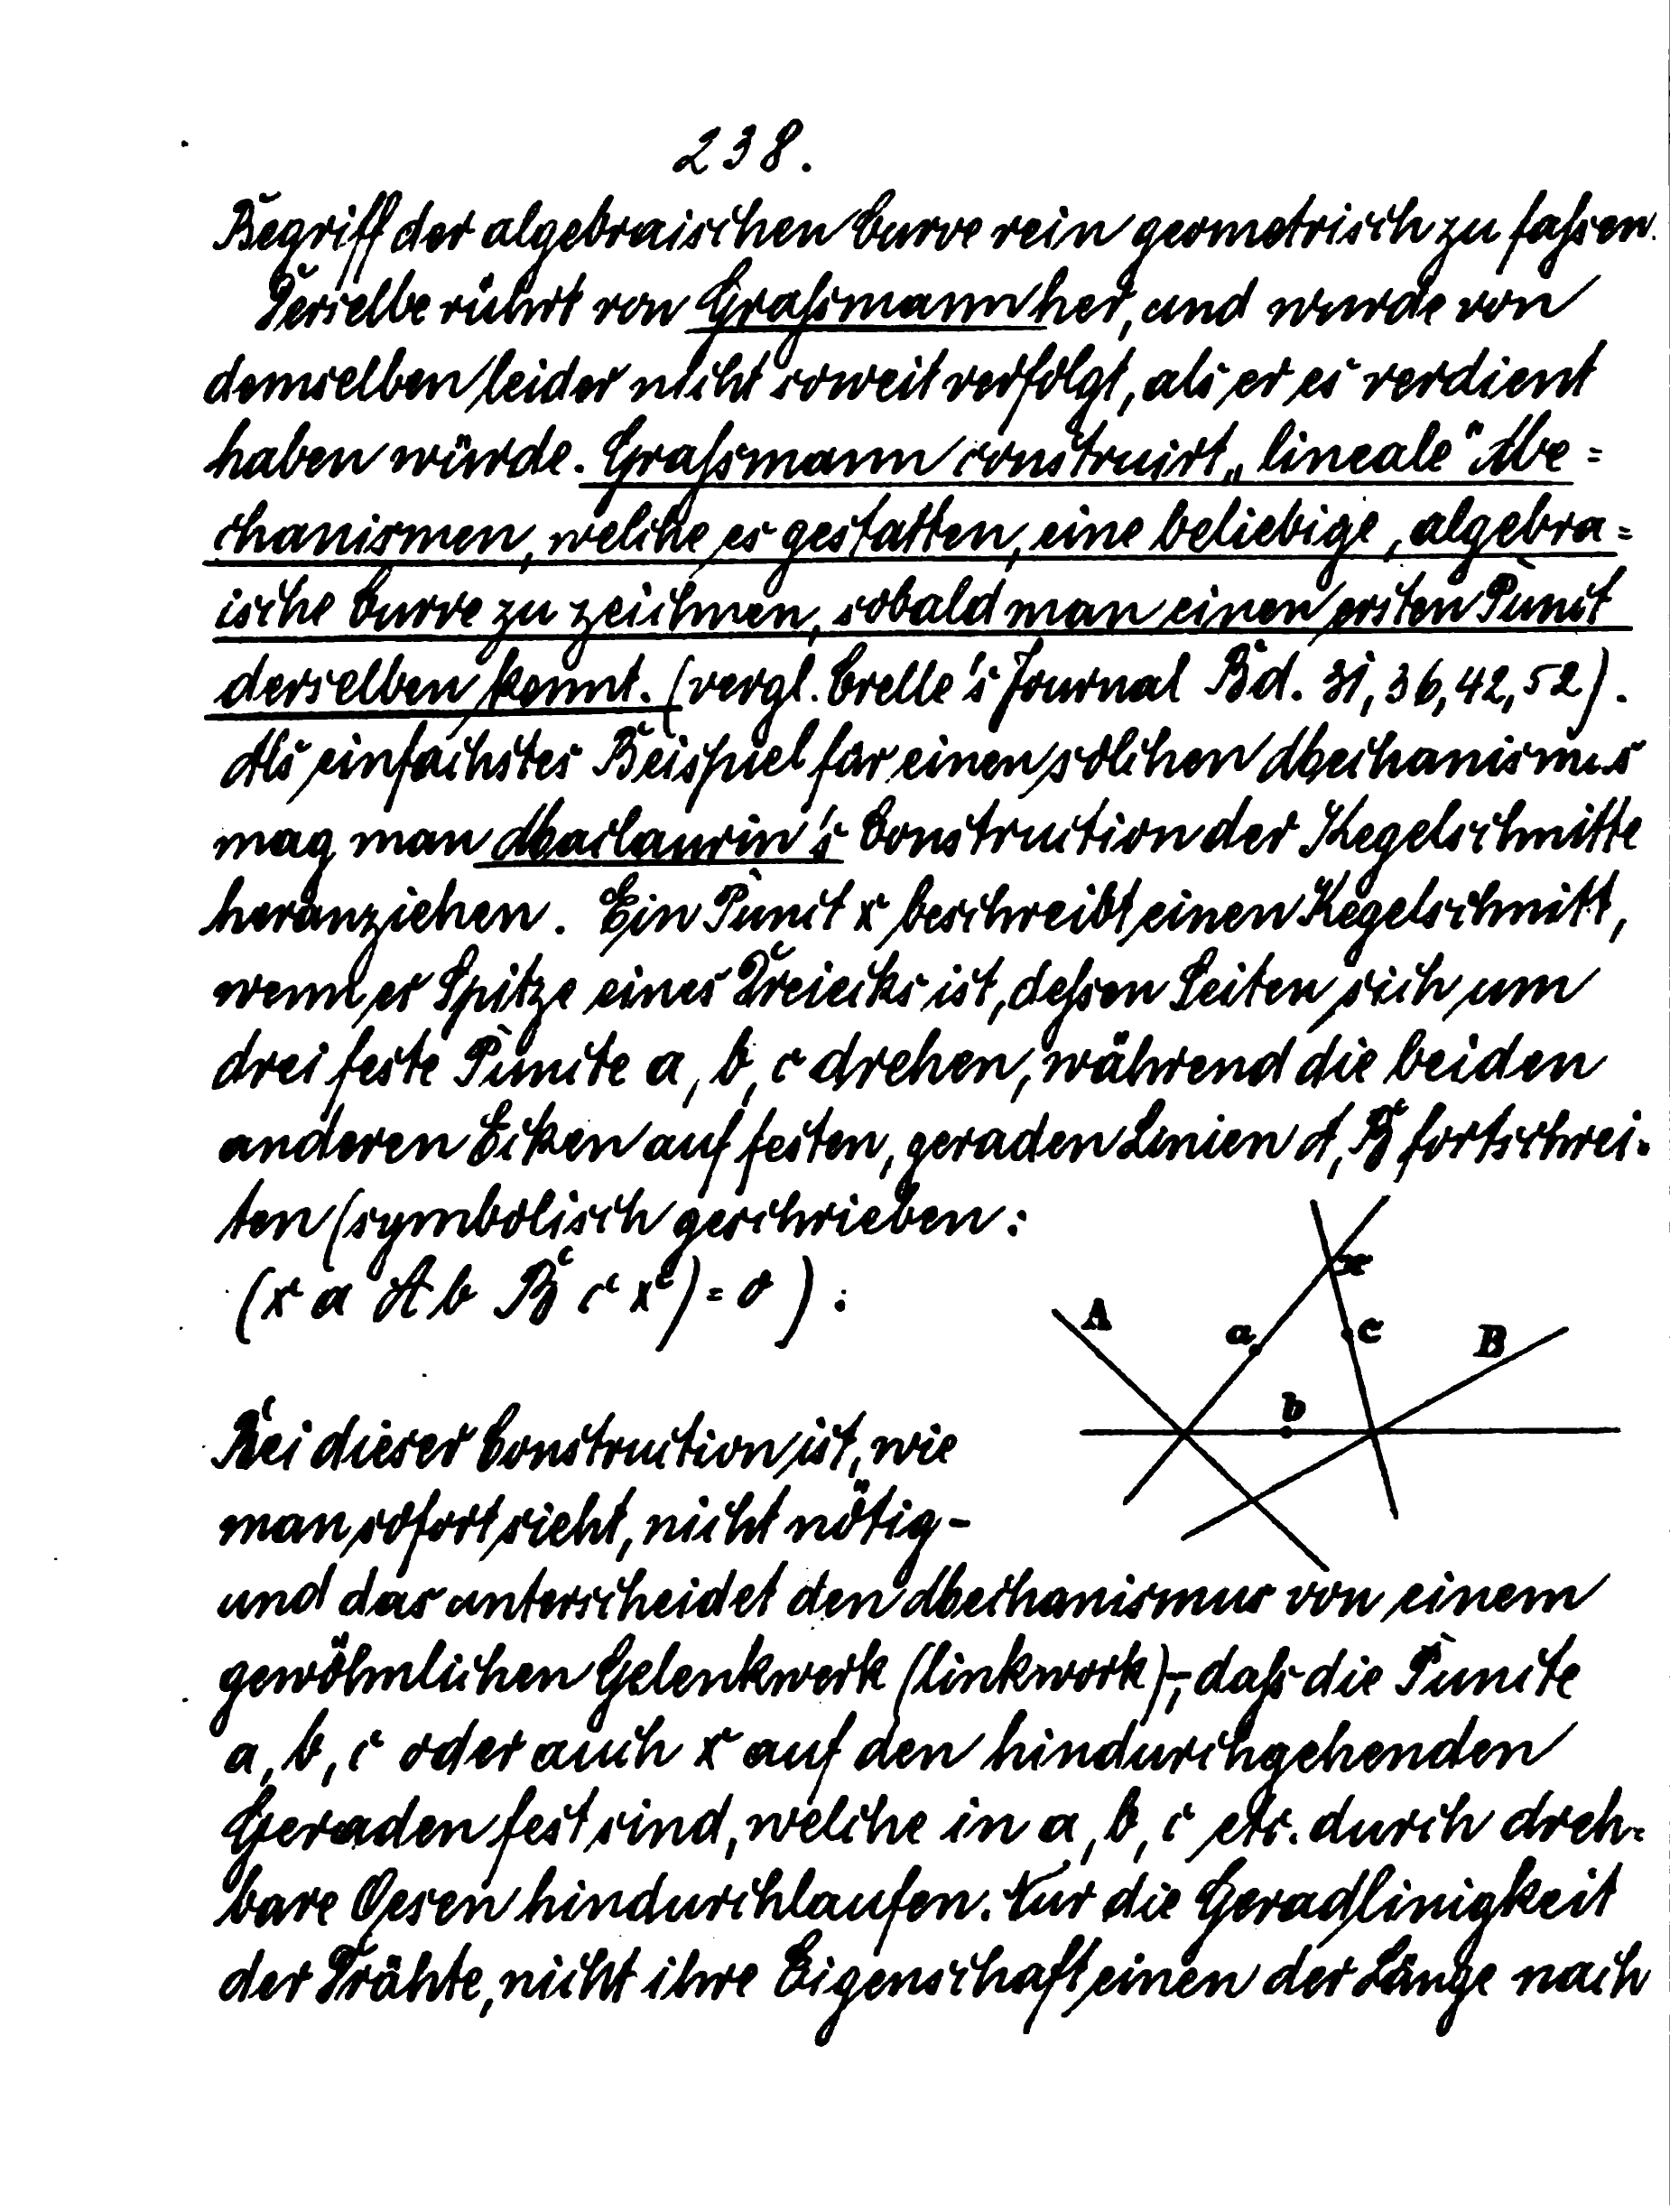 238.
Begriff der algebraischen Curve rein geometrisch zu faſsen.
Derselbe rührt von Graſsmann her, und wurde von
demselben leider nicht soweit verfolgt, als er es verdient
haben würde. Graſsmann construirt „lineale" Me=
chanismen, welche es gestatten, eine beliebige, algebra=
ische Curve zu zeichnen, sobald man einen ersten Punct
derselben kennt. (vergl. Crelle's Journal Bd. 31, 36, 42, 52).
Als einfachstes Beispiel für einen solchen Mechanismus
mag man Maclaurin's Construction der Kegelschnitte
heranziehen. Ein Punct x beschreibt einen Kegelschnitt,
wenn er Spitze eines Dreiecks ist, deſsen Seiten sich um
drei feste Puncte a, b, c drehen, während die beiden
anderen Ecken auf festen, geraden Linien A, B fortschrei=
ten (symbolisch geschrieben:
(x a A b B c x) = 0 ).
x
A
a
c
B
b
Bei dieser Construction ist, wie
man sofort sieht, nicht nötig -
und das unterscheidet den Mechanismus von einem
gewöhnlichen Gelenkwerk (linkwork) -, daſs die Puncte
a, b, c oder auch x auf den hindurchgehenden
Geraden fest sind, welche in a, b, c etc. durch dreh=
bare Oesen hindurchlaufen. Nur die Geradlinigkeit
der Drähte, nicht ihre Eigenschaft einen der Länge nach